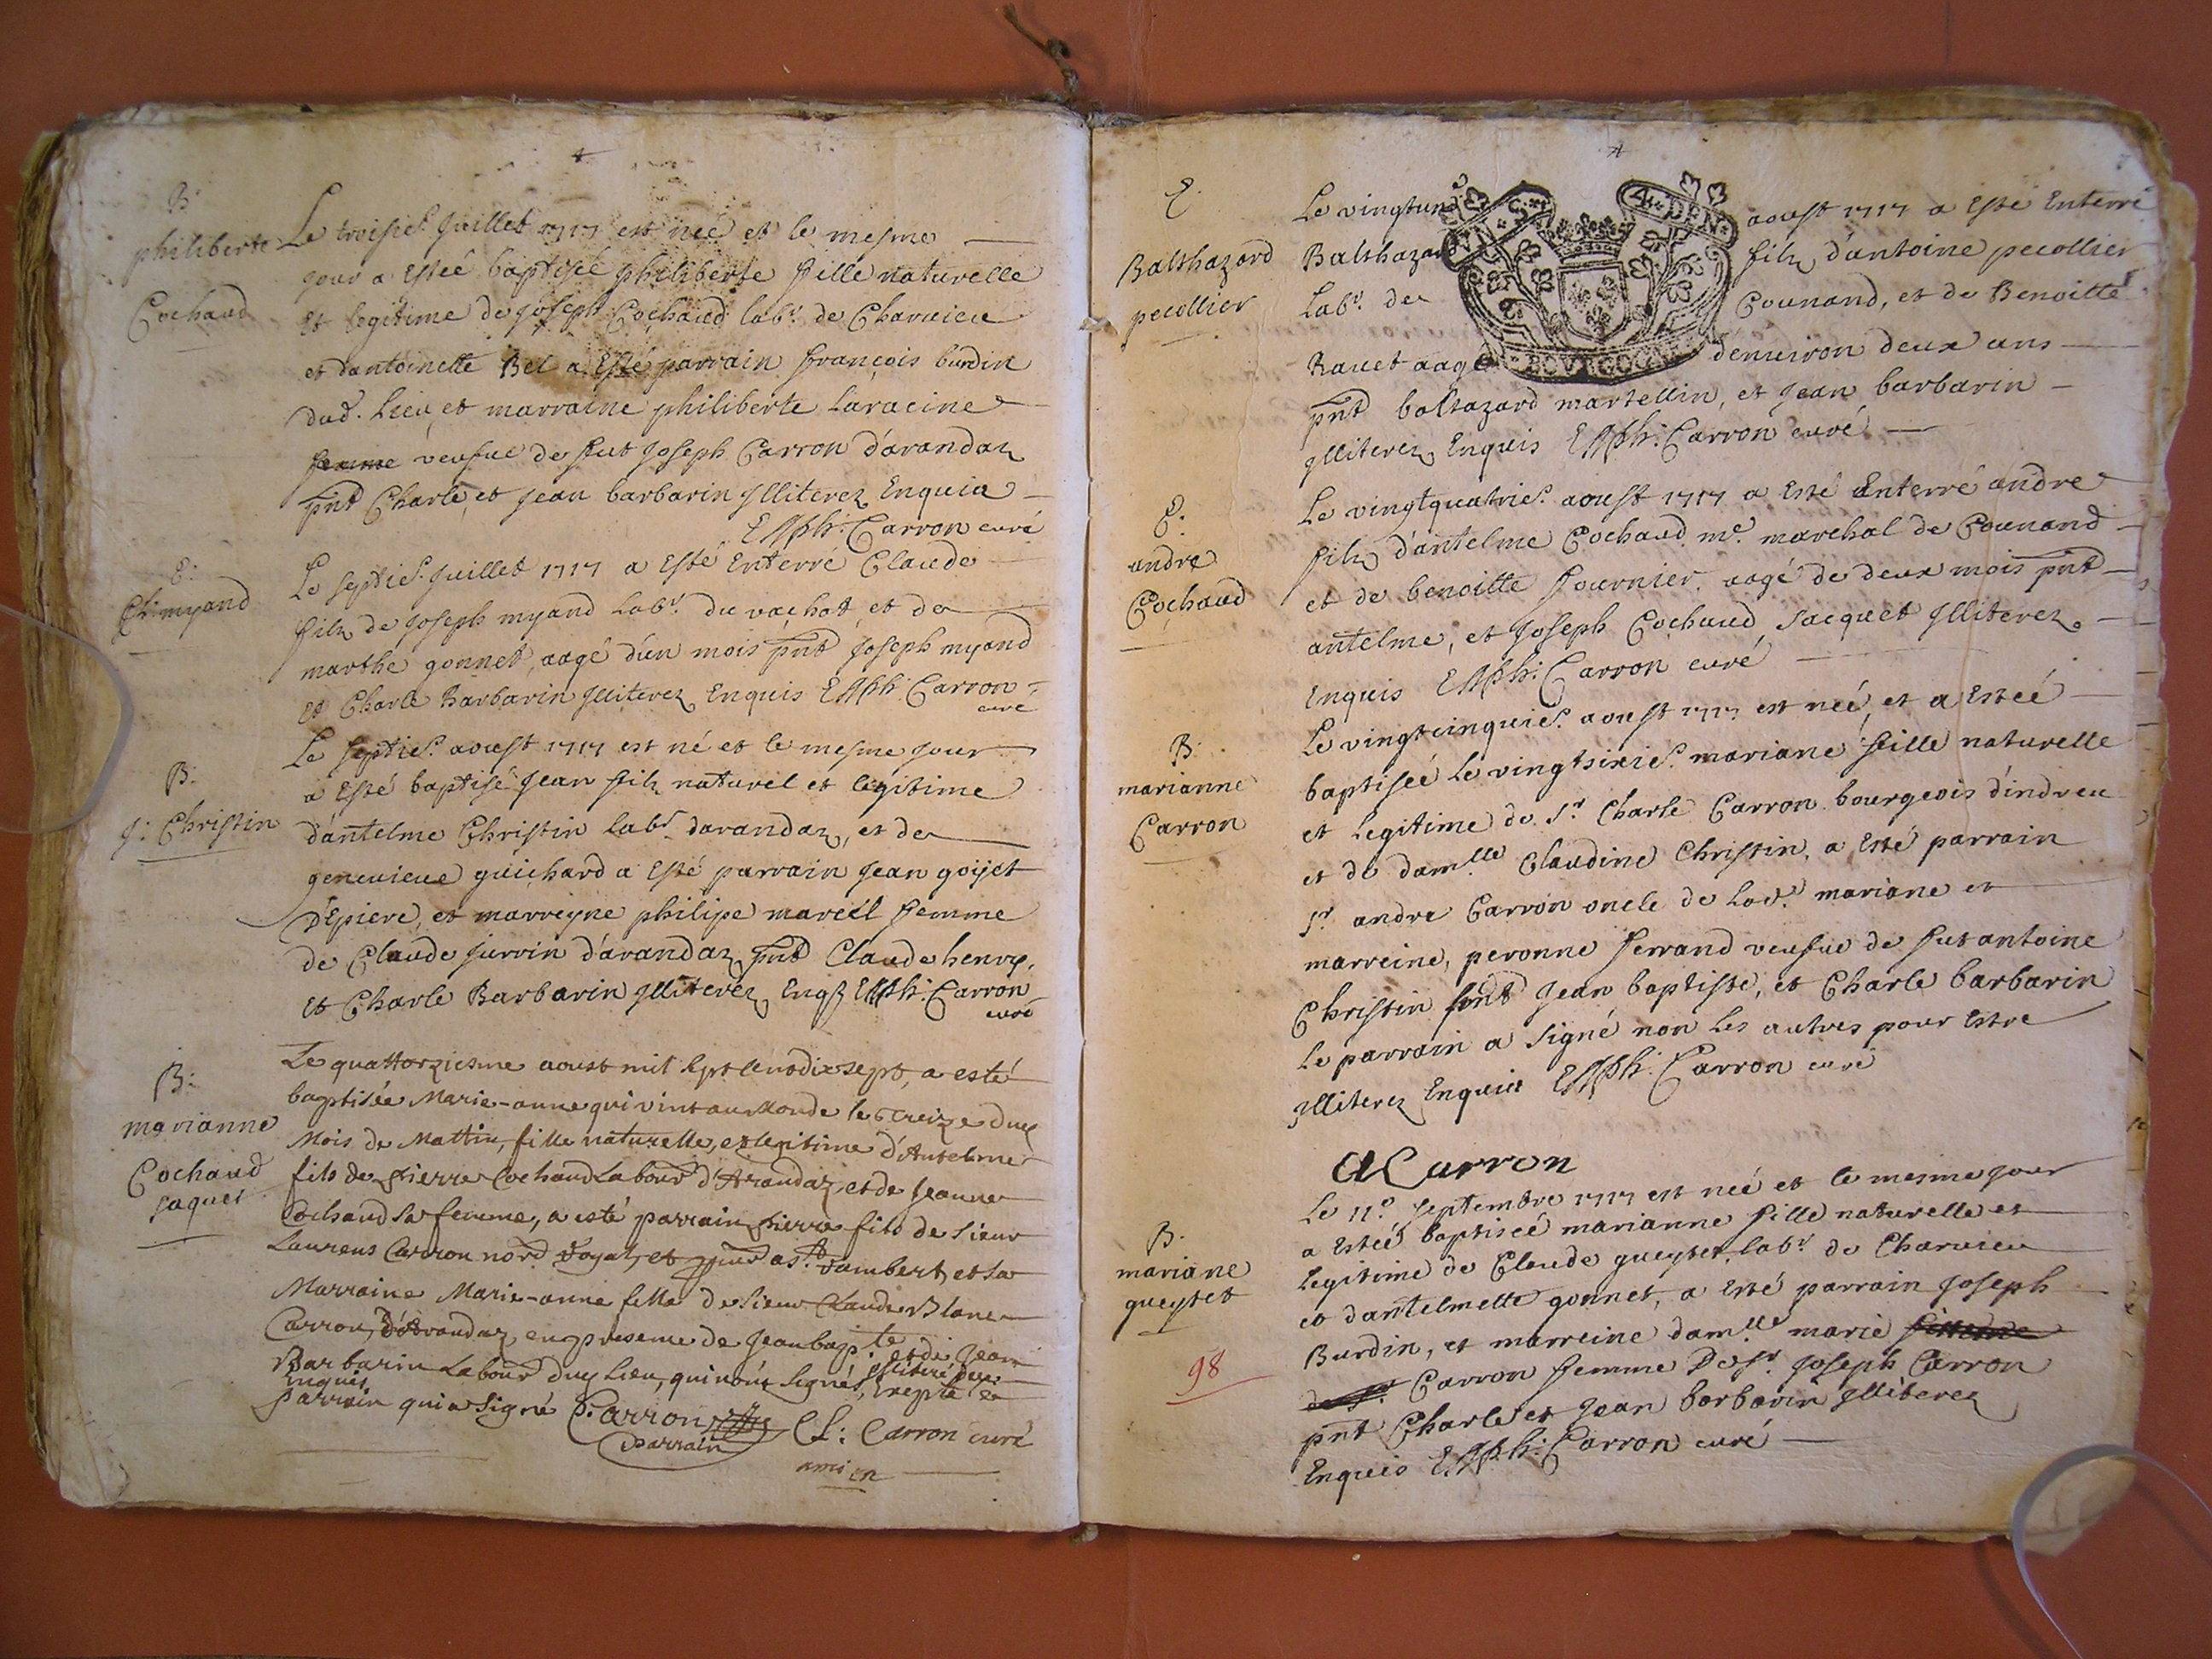 B.
philiberte
Cochaud
Le troisie. Juillet 1717 est neé et le mesme
jour a esteé baptiseé philiberte fille naturelle
et legitime de Joseph Cochaud labr. de Charuieu
et dantoinette Bel a esté parrain françois burdin
dud. Lieu et marraine philiberte Laracine
femme veufue de fut Joseph Carron d'arandaz
pnt Charle, et Jean barbarin Illiterez Enquis
Carron curé
E.
Cl. myand
Le septie. Juillet 1717 a esté Enterré Claude
filz de Joseph myand Labr. du vachat, et de
marthe gonnet, aagé d'un mois pnt Joseph myand
et Charle Barbarin Illiterez Enquis Carron
curé
B.
J: Christin
Le septie. aoust 1717 est né et le mesme jour
a esté baptisé Jean filz naturel et legitime
d'antelme Christin labr. darandaz, et de
geneuieue guichard a esté parrain Jean goijet
d'Epiere, et marreyne philipe mareil femme
de Claude Juruin d'arandaz pnt Claude henry,
et Charle Barbarin Illiterez Enqs Carron
curé
B:
marianne
Cochaud
jaquet
Le quattorziesme aoust mil sept cens dix sept, a esté
baptisée Marie-anne qui vint au Monde le treize duy
Mois de Mattin, fille naturelle, et legitime d'Antelme
fils de pierre Cochaud Labour d'Arandaz, et de Jeanne
Cochaud sa femme, a esté parrain pierre fils de sieur
Laurens Carron nore. Royal, et a St. Rambert, et la
Marraine Marie-anne fille de sieur Claude Blanc
Carron, d'Arandaz, en presence de Jean bapte. et de Jean
Barbarin Labour duy Lieu, qui n'ont signé, Illiteré pour
enquis
excepté le
parrain qui a signé P. Carron
parrain
Cl: Carron curé
E.
Balthazard
pecollier
Le vingtun aoust 1717 a esté Enterré
Balthazar filz d'antoine pecollier
Labr. de Counand, et de Benoitte
Rauet aagé d'enuiron deux ans
4. DEN.
BOURGOGNE
pnt baltazard martellin, et Jean barbarin
Illiterez Enquis Carron curé
E.
andre
Cochaud
Le vingtquatrie. aoust 1717 a esté Enterré andre
filz d'antelme Cochaud me. marchal de Counand
et de benoitte fournier aagé de deux mois pnt
antelme, et Joseph Cochaud Jacquet Illiterez
Enquis Carron curé
B.
marianne
Carron
Le vingtcinquie. aoust 1717 est neé, et a esteé
baptiseé Le vingtsixie. mariane fille naturelle
et Legitime de Sr. Charle Carron bourgeois d'indrieu
et de damlle Claudine Christin, a esté parrain
Sr. andre Carron oncle de lad. mariane et
marreine, peronne ferrand veufue de fut antoine
Christin pnt Jean baptiste, et Charle barbarin
Le parrain a signé non les autres pour estre
Illiterez Enquis Carron curé
A Carron
B.
mariane
gueytet
98
Le 11e. septembre 1717 est neé et le mesme jour
a esteé baptiseé marianne fille naturelle et
Legitime de Claude gueytet labr. de Charuieu
et dantelmette gonnet, a esté parrain Joseph
Burdin, et marreine damlle marie
Carron femme De Sr. Joseph Carron
pnt Charle et Jean barbarin Illiterez
Enquis Carron curé